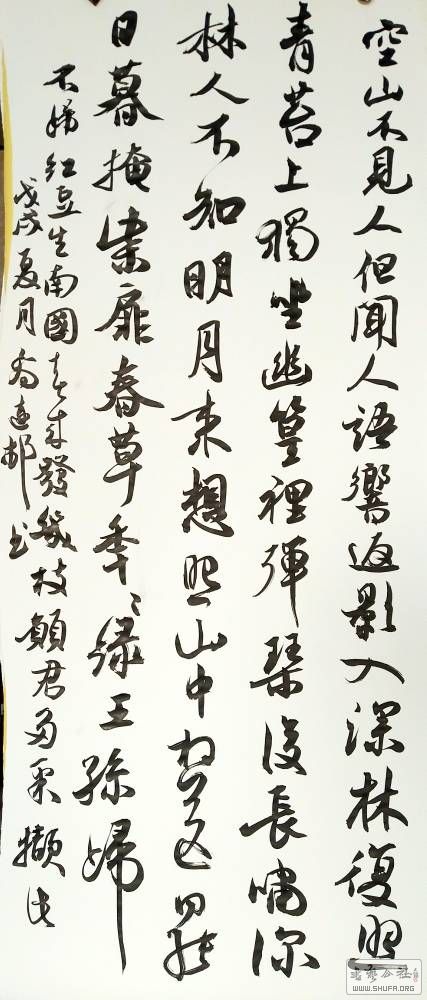 空山不見人但聞人語響返影入深林復照
青苔上獨坐幽篁裡彈琴復長嘯深
林人不知明月来想照山中相送罷
日暮掩柴扉春草年々绿王孫歸
不歸红豆生南國春来發幾枝願君多采擷此
戊戌夏月喬邨书
书法公社
WWW.SHUFA.ORG